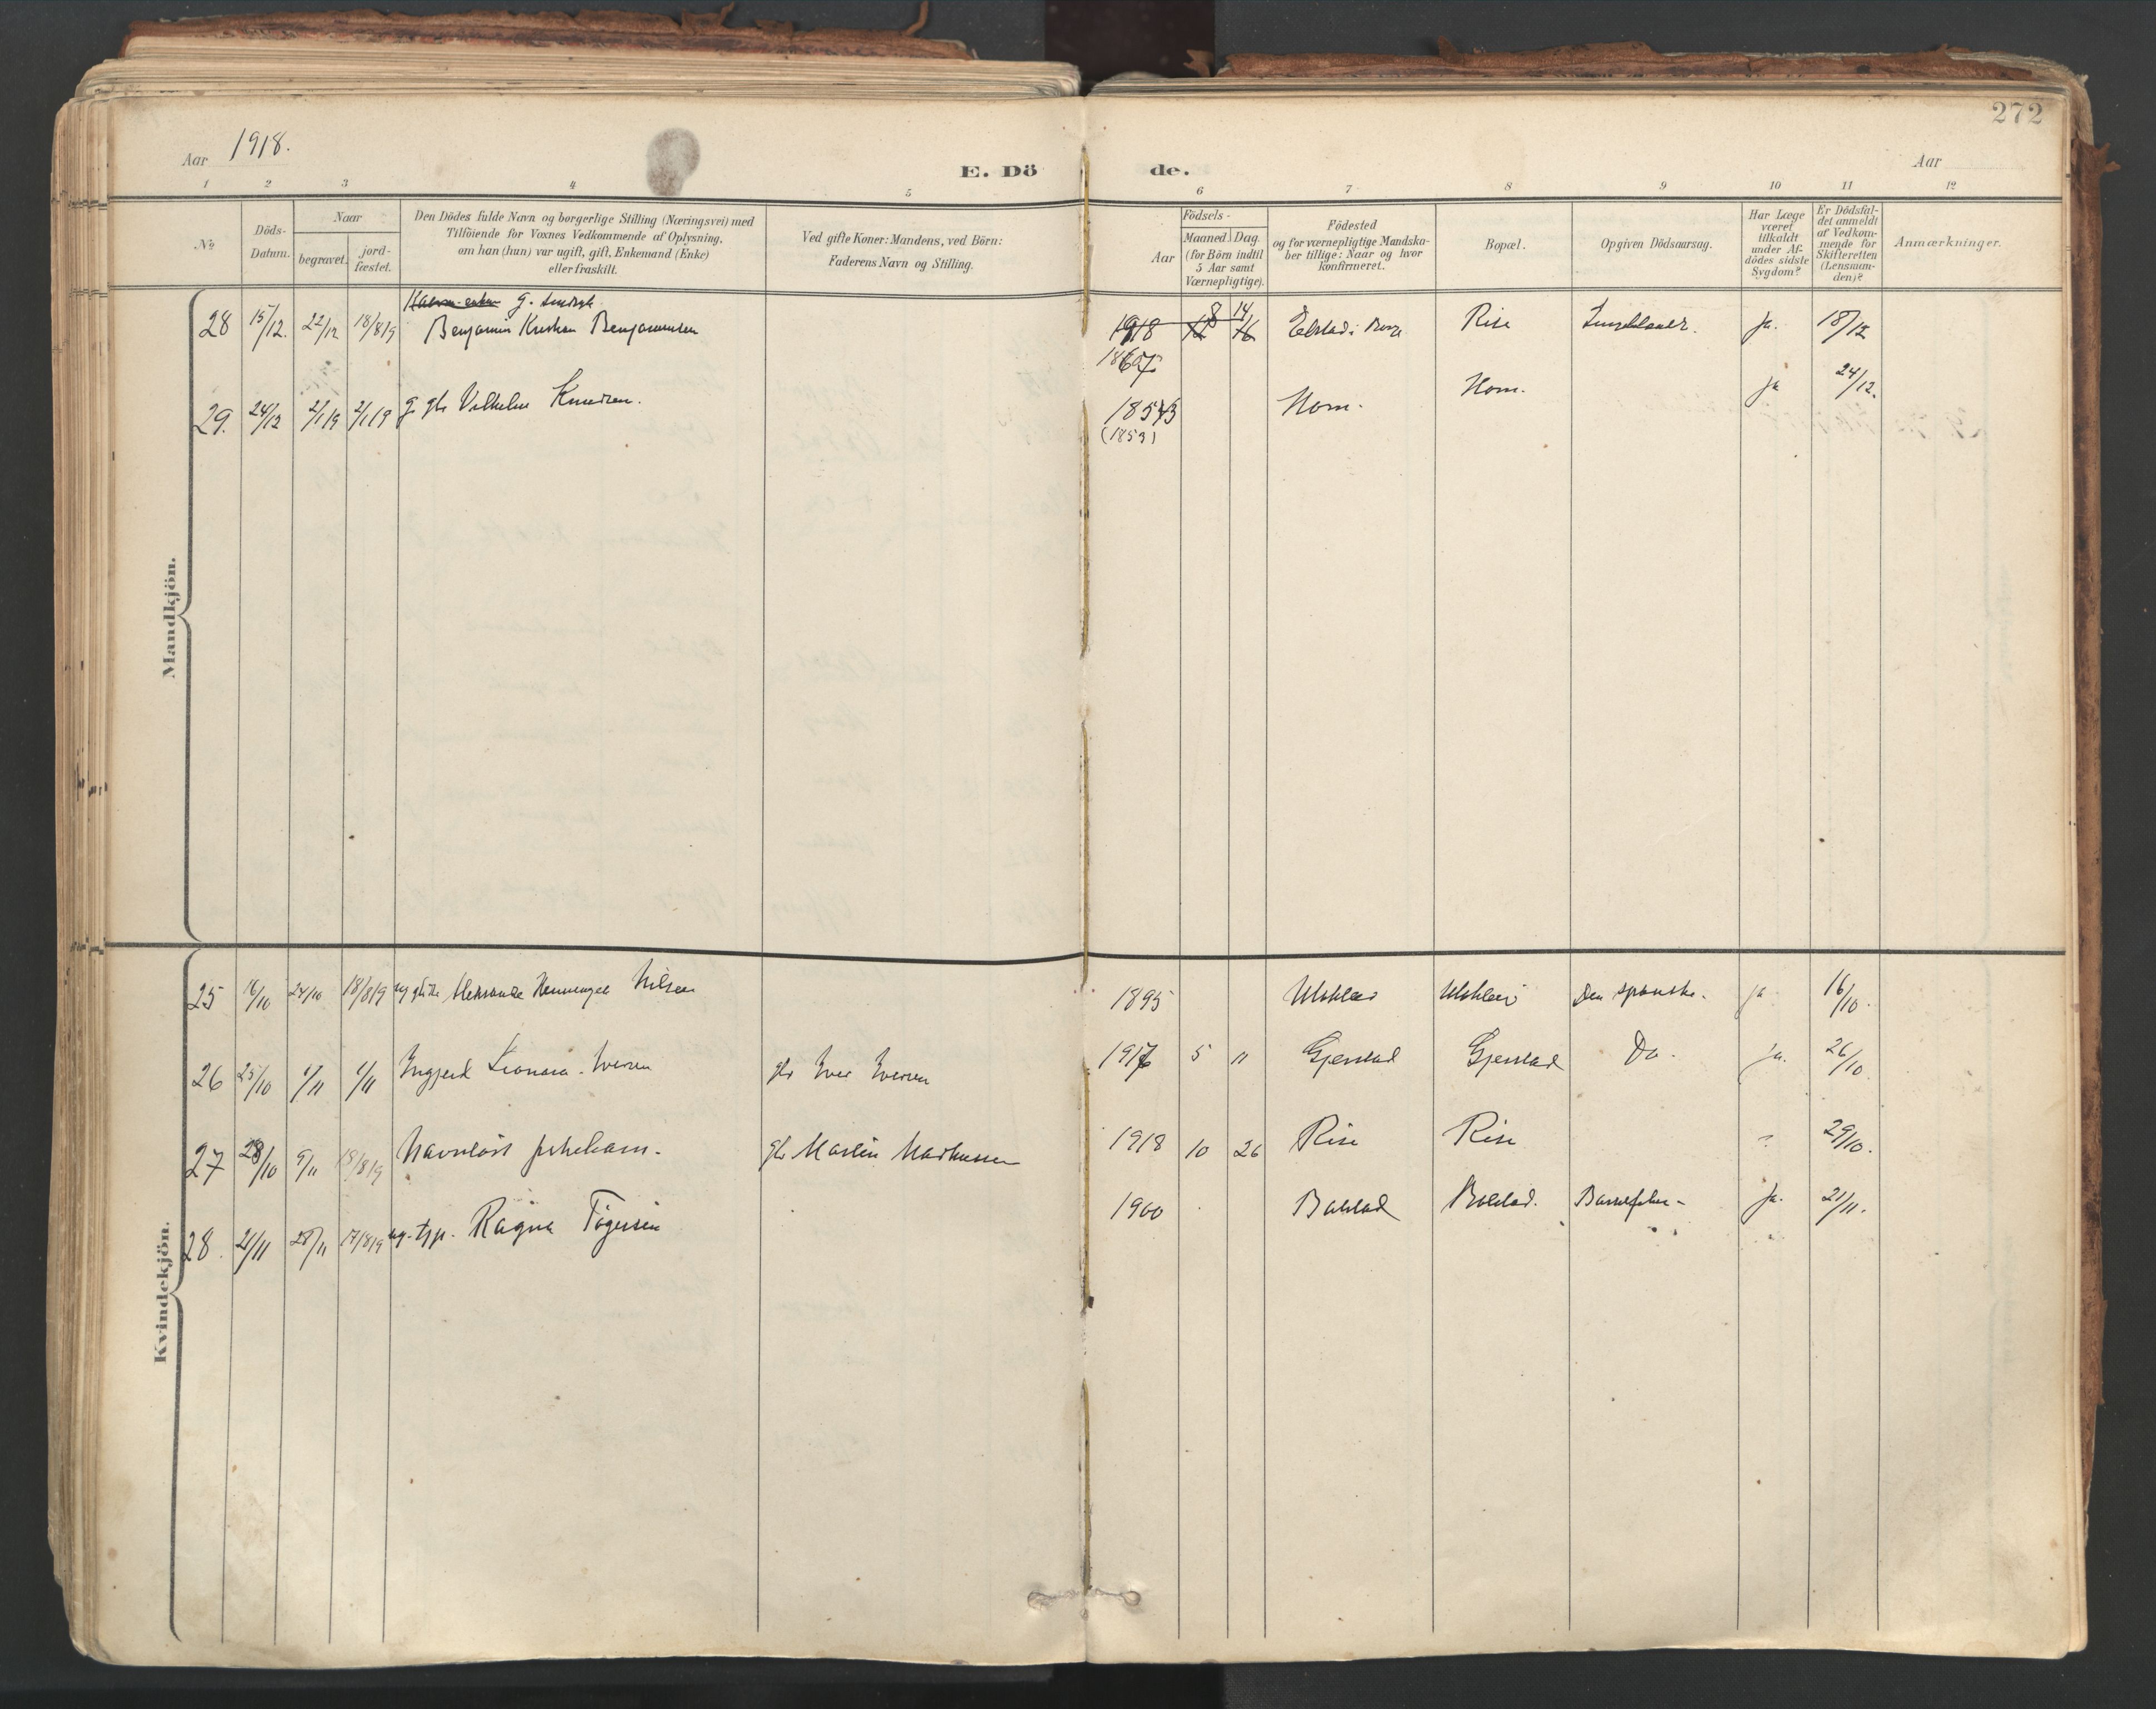 272
Aar 1918.
E. Dö de.
Aar
1 2 3 4 5 6 7 8 9 10 11 12
No.
Döds-
Datum.
Naar
begravet.
jord-
fæstet.
Den Dödes fulde Navn og borgerlige Stilling (Næringsvei) med
Tilföiende for Voxnes Vedkommende af Oplysning,
om han (hun) var ugift, gift, Enkemand (Enke)
eller fraskilt.
Ved gifte Koner: Mandens, ved Börn:
Faderens Navn og Stilling.
Födsels-
Aar
Maaned. Dag.
(for Börn indtil
5 Aar samt
Værnepligtige).
Födested
og for værnepligtige Mandska-
ber tillige: Naar og hvor
konfirmeret.
Bopæl.
Opgiven Dödsaarsag.
Har Læge
været
tilkaldt
under Af-
dödes sidste
Sygdom?
Er Dödsfal-
det anmeldt
af Vedkom-
mende for
Skifteretten
(Lensman-
den)?
Anmærkninger.
Mandkjön.
28 15/12. 22/12 18/8 19 Benjamin Kristian Benjaminsen 1918 1867 8 14 12 16 Rise ja. 18/12
29. 24/12 2/1 19 2/1 19 g. gbr Vilhelm Knudsen. 1853 (1859) Hom. Hom. ja 24/12.
Kvindekjön.
25 16/10 24/10 18/8 19 Nilsen 1895 Den spanske. ja 16/10.
26 25/10 1/11 1/11 Ingjerd Leonora Iversen gbr Iver Iversen 1917 5 11 Gjerstad Gjerstad Do. ja. 26/10
27 28/10 9/11 18/8 19 Navnløst pikebarn. gbr Martin Markussen 1918 10 26 Rise Rise ? 29/10.
28. 21/11 28/11 17/8 19 ug. tjp. Ragna Tøgersen 1900 Bakstad Bakstad. Ja. 21/11.